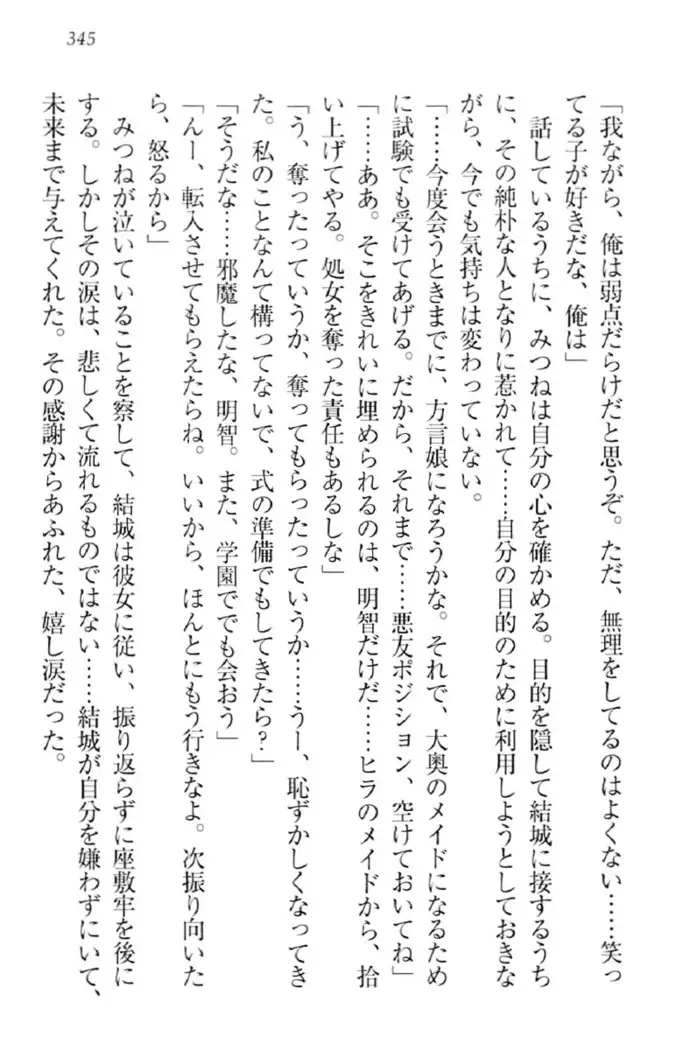 345
「我ながら、俺は弱点だらけだと思うぞ。ただ、無理をしてるのはよくない……笑っ
てる子が好きだな、俺は」
話しているうちに、みつねは自分の心を確かめる。目的を隠して結城に接するうち
に、その純朴な人となりに惹かれて……自分の目的のために利用しようとしておきな
がら、今でも気持ちは変わっていない。
「……今度会うときまでに、方言娘になろうかな。それで、大奥のメイドになるため
に試験でも受けてあげる。だから、それまで……悪友ポジション、空けておいてね」
「……ああ。そこをきれいに埋められるのは、明智だけだ……ヒラのメイドから、拾
い上げてやる。処女を奪った責任もあるしな」
「う、奪ったっていうか、奪ってもらったっていうか……うー、恥ずかしくなってき
た。私のことなんて構ってないで、式の準備でもしてきたら?」
「そうだな……邪魔したな、明智。また、学園ででも会おう」
「んー、転入させてもらえたらね。いいから、ほんとにもう行きなよ。次振り向いた
ら、怒るから」
みつねが泣いていることを察して、結城は彼女に従い、振り返らずに座敷牢を後に
する。しかしその涙は、悲しくて流れるものではない……結城が自分を嫌わずにいて、
未来まで与えてくれた。その感謝からあふれた、嬉し涙だった。